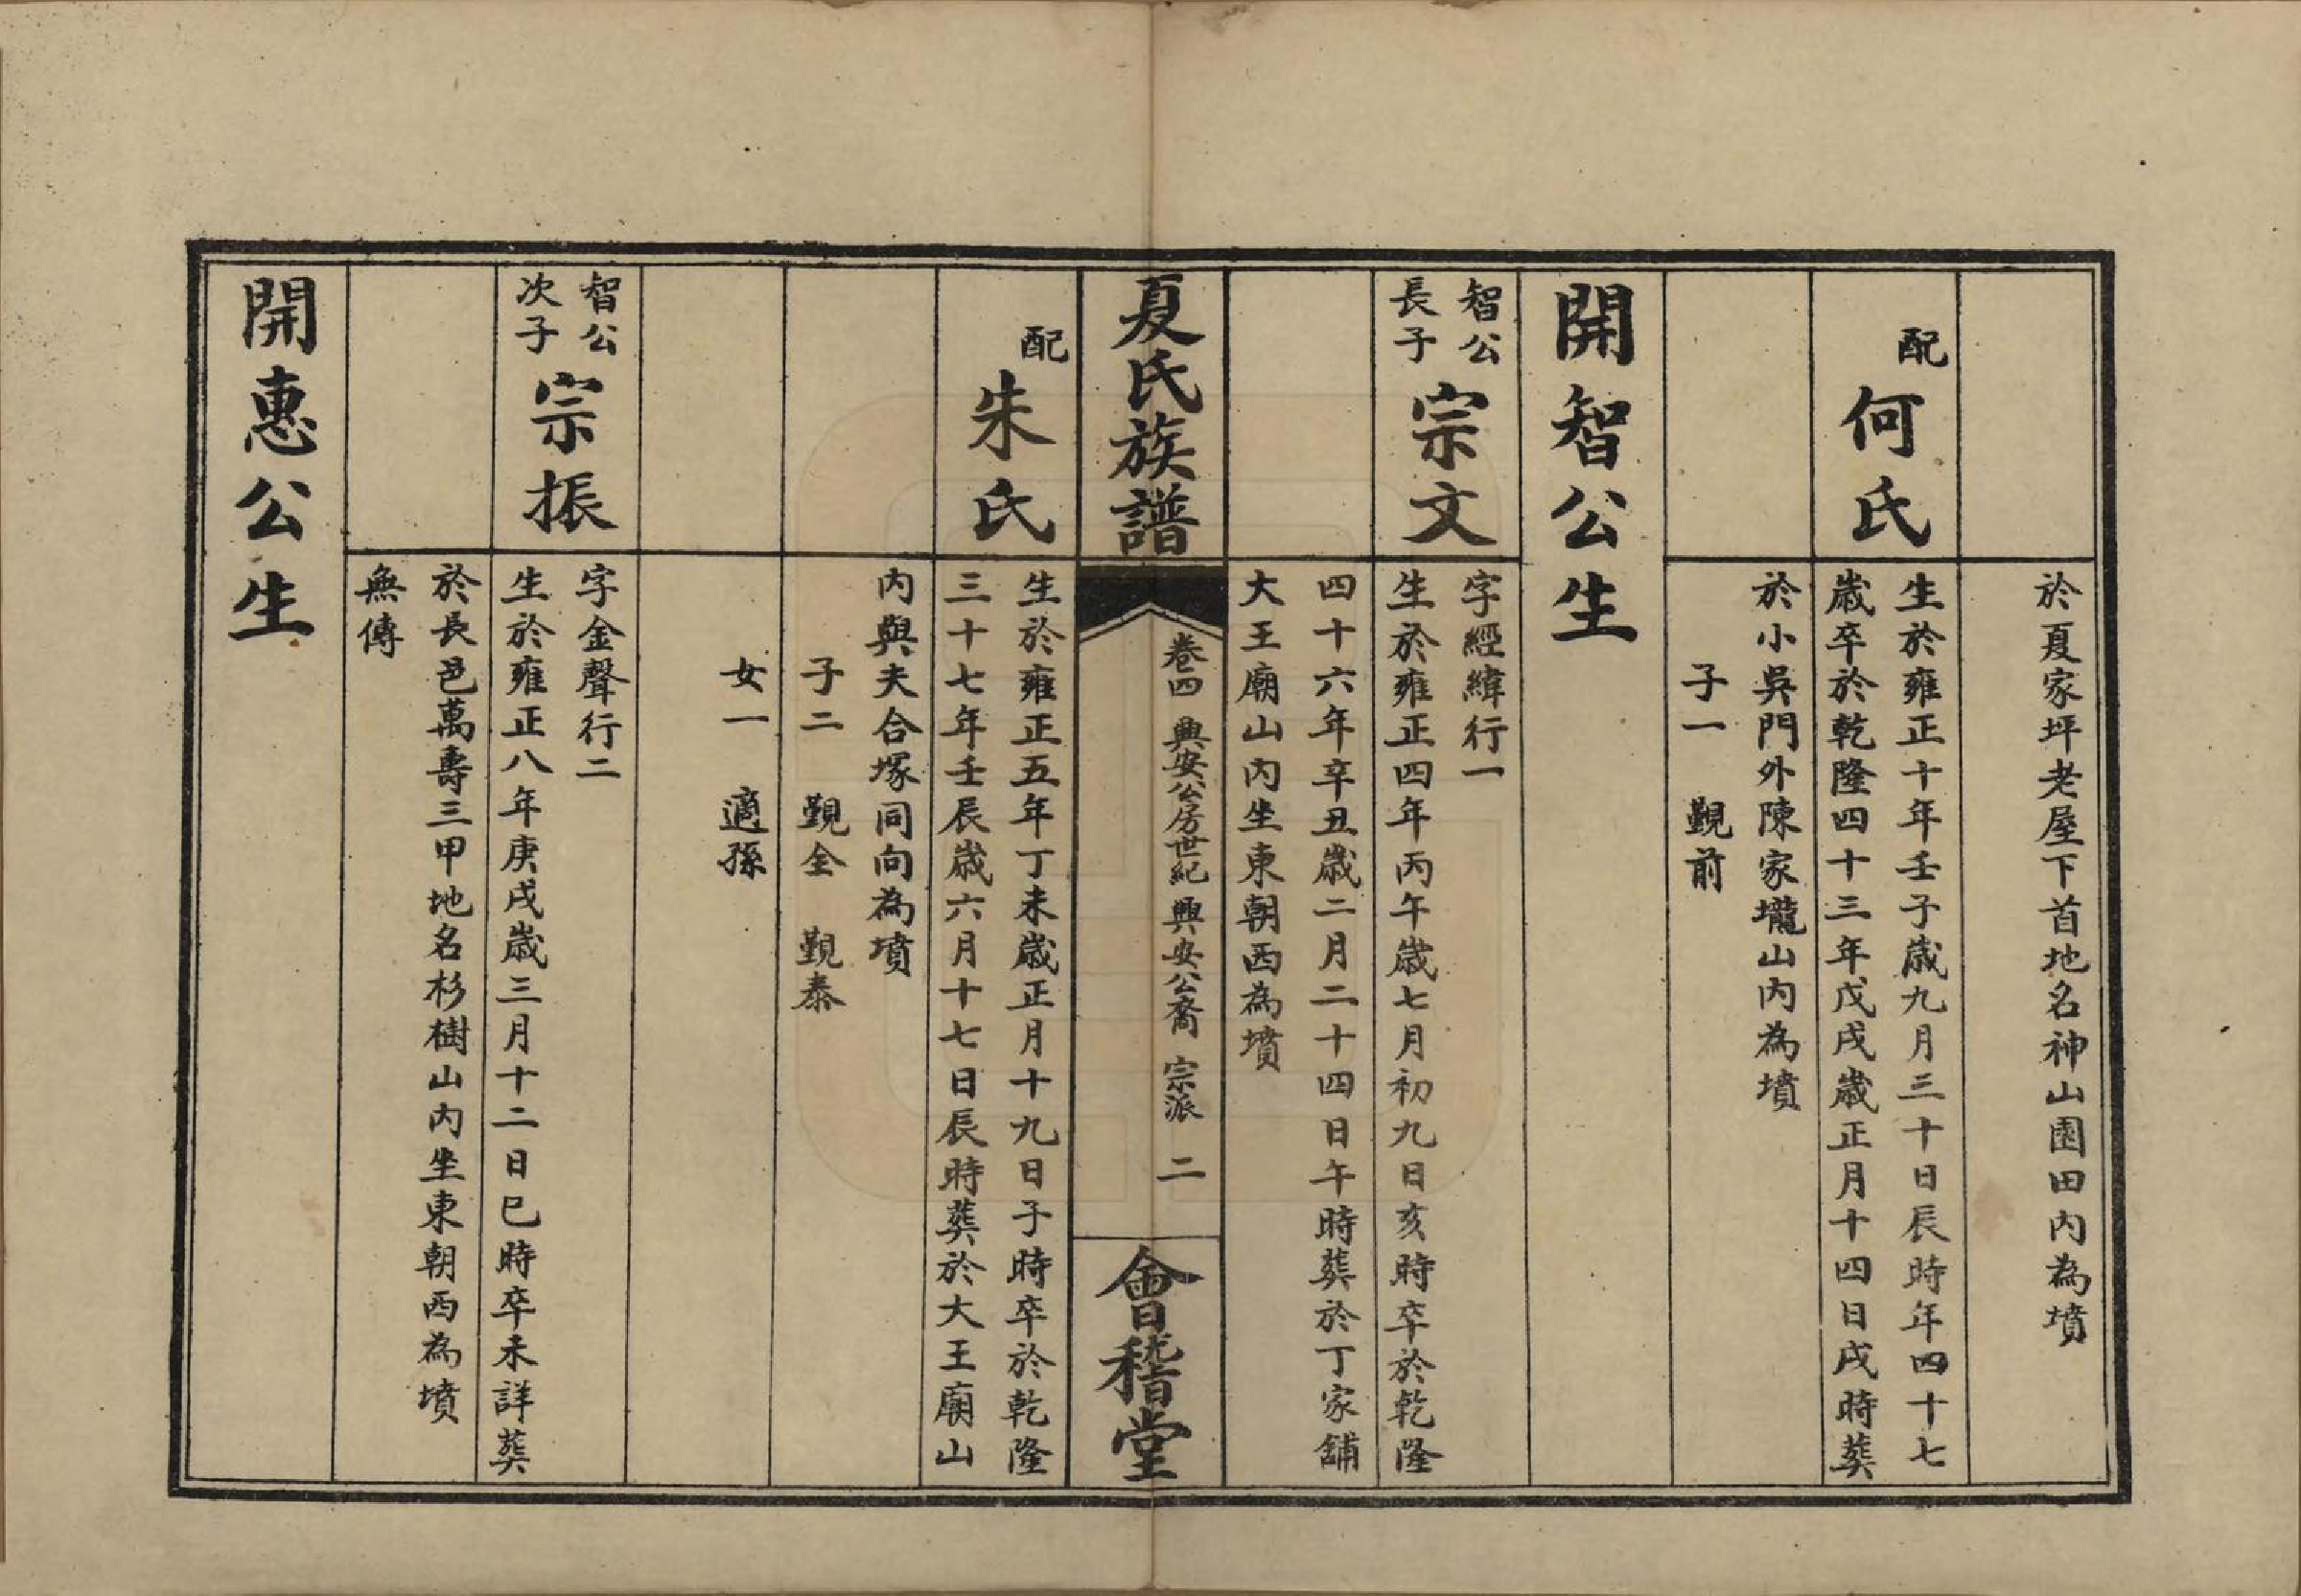 於夏家坪老屋下首地名神山園田內為墳
配
何氏
生於雍正十年壬子歲九月三十日辰時年四十七
歲卒於乾隆四十三年戊戌歲正月十四日戌時葬
於小吳門外陳家壠山內為墳
子一　觐前
開智公生
智公
長子
宗文
字經緯行一
生於雍正四年丙午歲七月初九日亥時卒於乾隆
四十六年卒丑歲二月二十四日午時葬於丁家舖
大王廟山內坐東朝西為墳
夏氏族譜
卷四　興安公房世紀　興安公裔　宗派　二
會稽堂
配
朱氏
生於雍正五年丁未歲正月十九日子時卒於乾隆
三十七年壬辰歲六月十七日辰時葬於大王廟山
內與夫合塚同向為墳
子二　觐全　觐泰
女一　適孫
智公
次子
宗振
字金聲行二
生於雍正八年庚戌歲三月十二日巳時卒未詳葬
於長邑萬壽三甲地名杉樹山內坐東朝西為墳
無傳
開惠公生